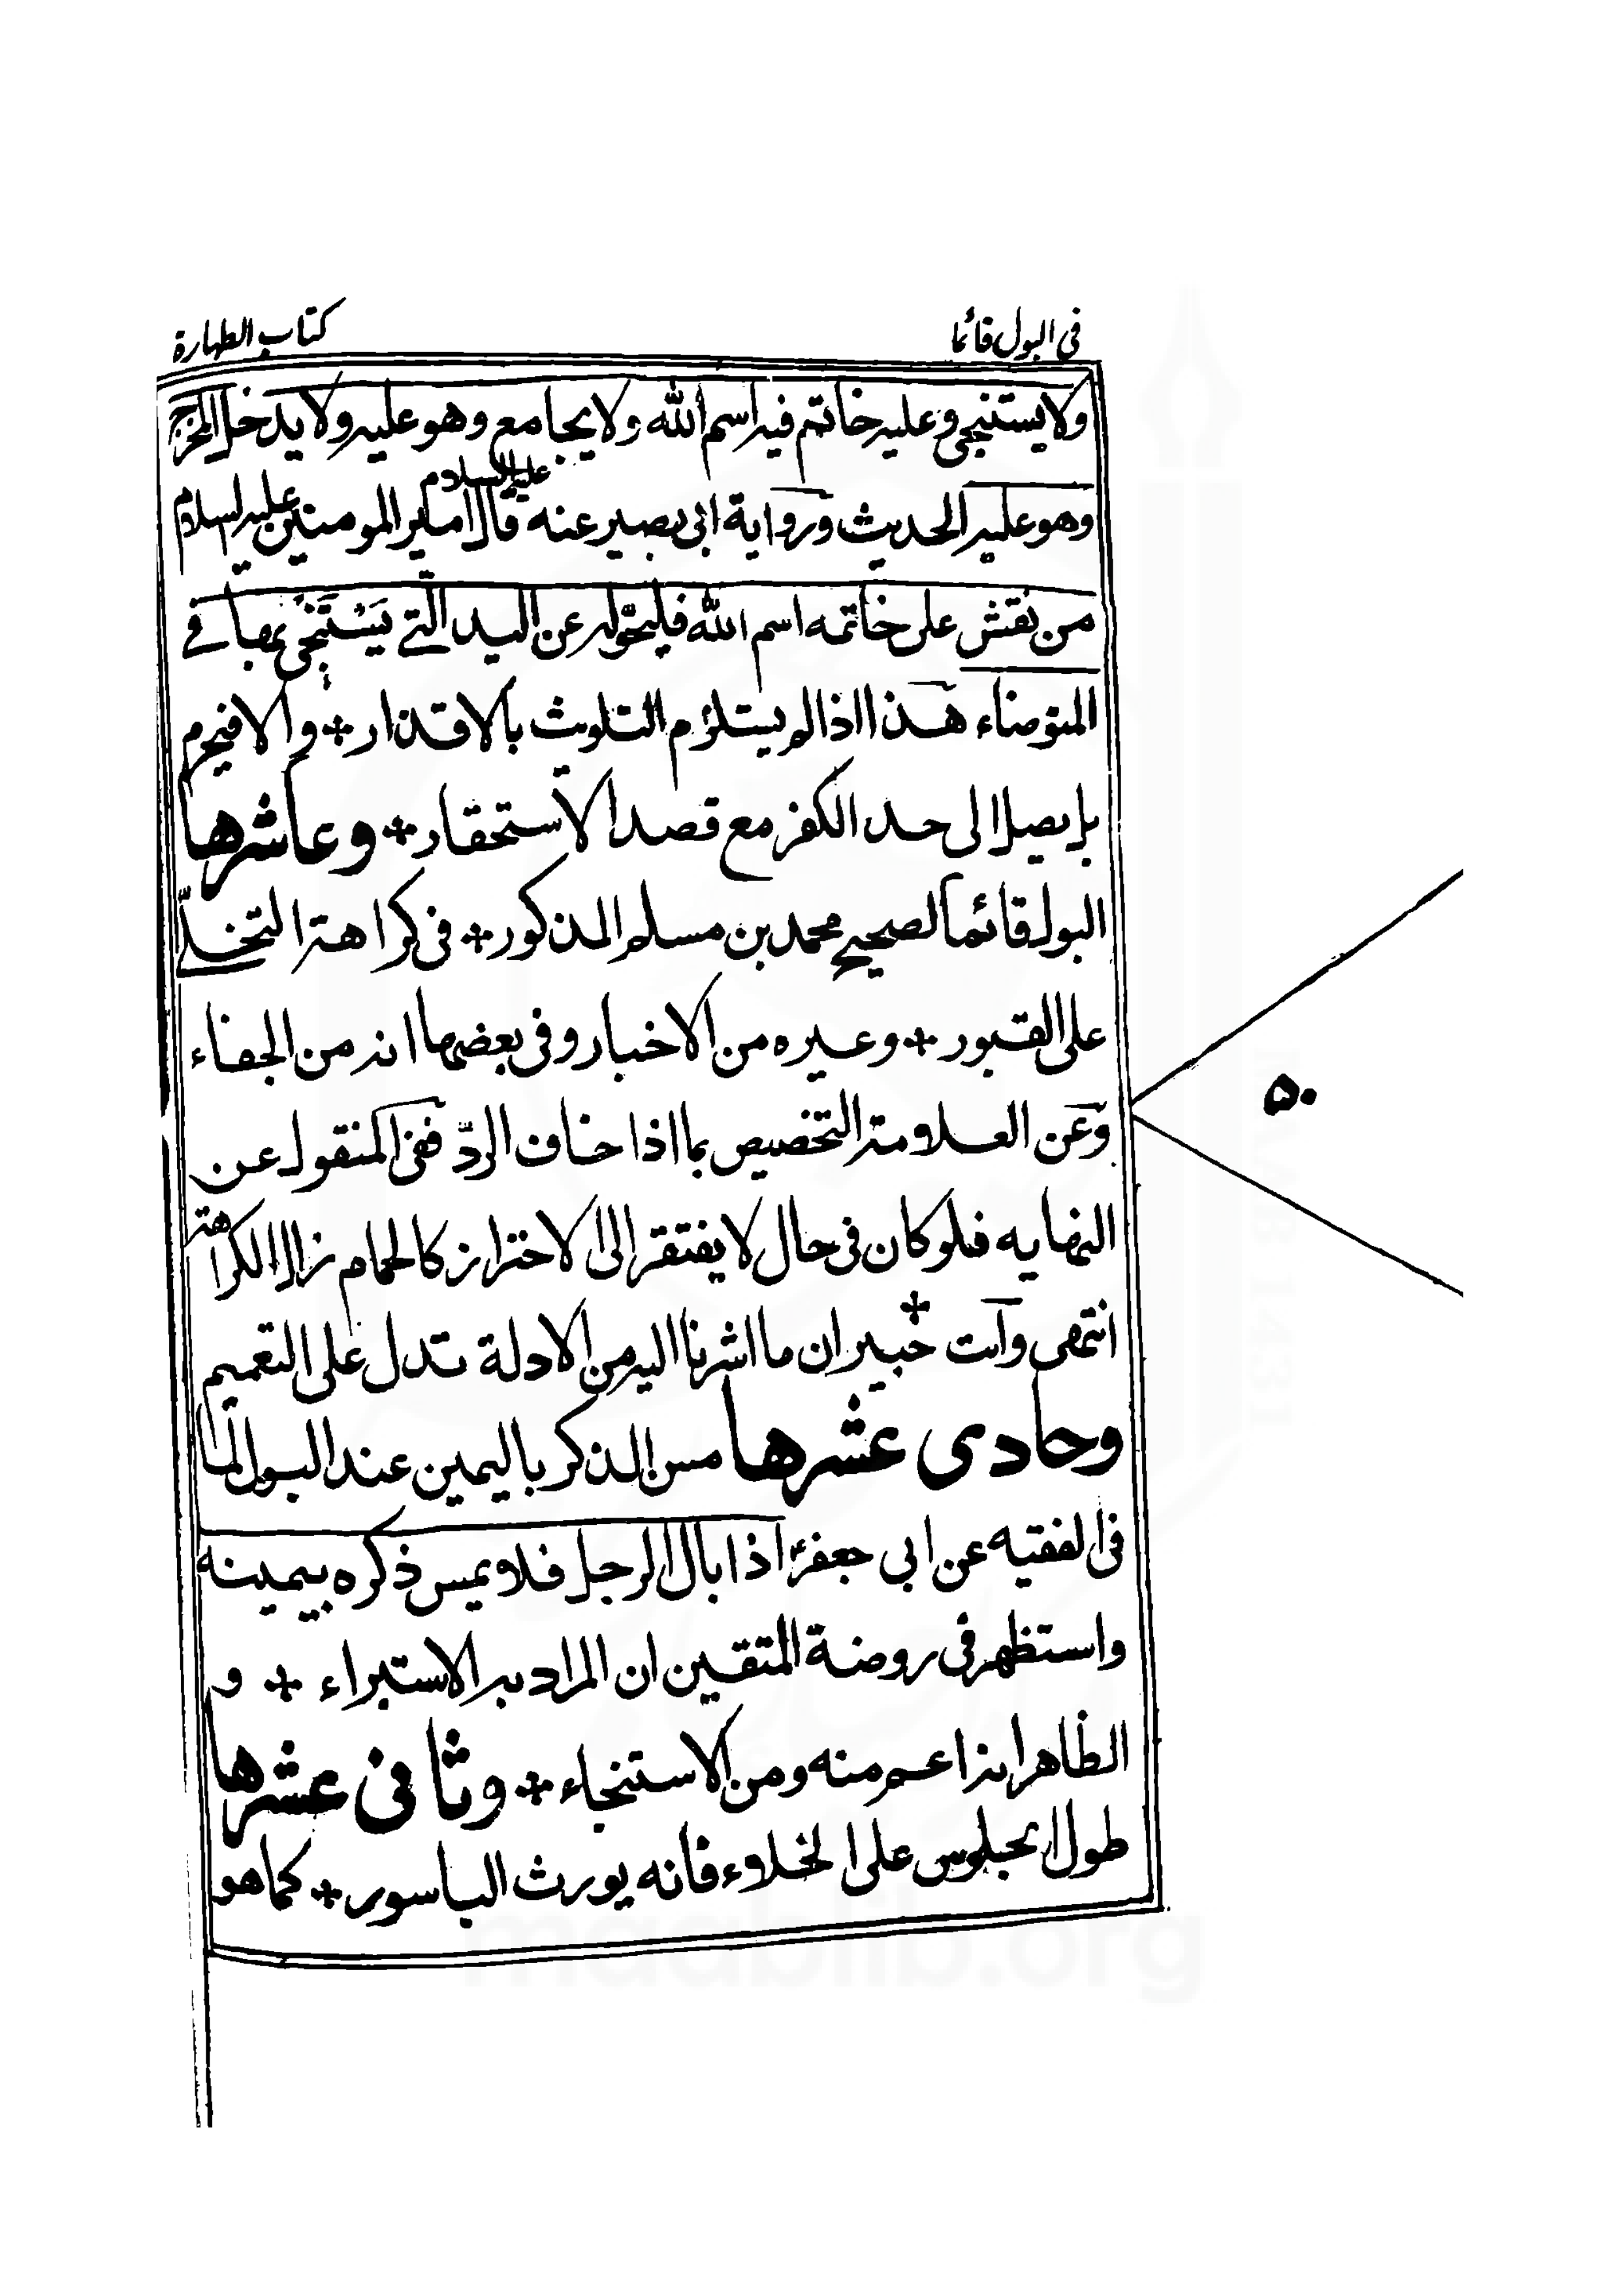 في البول قائما
كتاب الطهارة
ولا يستنجي وعليه خاتم فيه اسم الله ولا يجامع وهو عليه ولا يدخل المخرج
وهو عليه الحديث ورواية ابي بصير عنه عليه السلام قال امير المومنين عليه السلام
من نقش على خاتمه اسم الله فليحوّله عن اليد الّتي يَسْتَنْجي بها في
المتوضاء هذا اذا لم يستلزم التلويث بالاقذار + والا فيحرم
بل يصل الى حد الكفر مع قصد الاستحقار + وعاشرها
البول قائما لصحيح محمد بن مسلم المذكور + في كراهة التخلّي
على القبور + وغيره من الاخبار وفي بعضها انه من الجفاء
وعن العلامة التخصيص بما اذا خاف الردّ ففي المنقول عن
النهايه فلو كان في حال لا يفتقر الى الاحتراز كالحمام زال الكراهة
انتهى وانت خبير + ان ما اشرنا اليه من الادلة تدل على التعميم
وحادي عشرها مس الذكر باليمين عند البول لما
في الفقيه عن ابي جعفرؑ اذا بال الرجل فلا يمس ذكره بيمينه
واستظهر في روضة المتقين ان المراد به الاستبراء + و
الظاهر انه اعم منه ومن الاستنجاء + وثاني عشرها
طول الجلوس على الخلاء فانه يورث الباسور + كما هو
۵۰
maablib.org